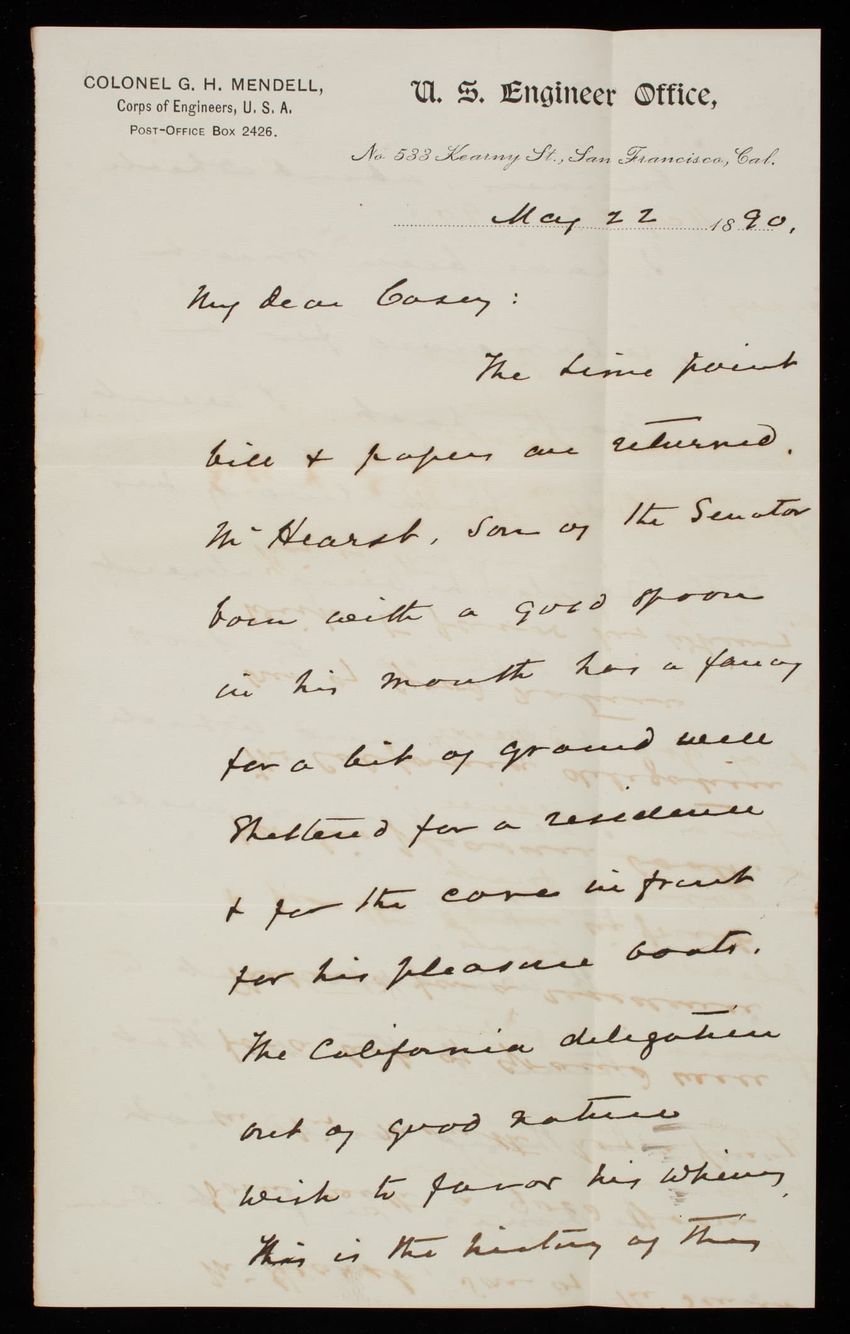 COLONEL G. H. MENDELL,
Corps of Engineers, U. S. A.
POST-OFFICE BOX 2426.
U. S. Engineer Office,
No. 533 Kearny St., San Francisco, Cal.
May 22 1890.
My dear Casey:
The Lime point
bill & papers are returned.
Mr Hearst, Son of the Senator
born with a good spoon
in his mouth has a fancy
for a bit of ground well
Sheltered for a residence
& for the cove in front
for his pleasure boats.
The California delegation
out of good nature
wish to favor his whims,
This is the history of this